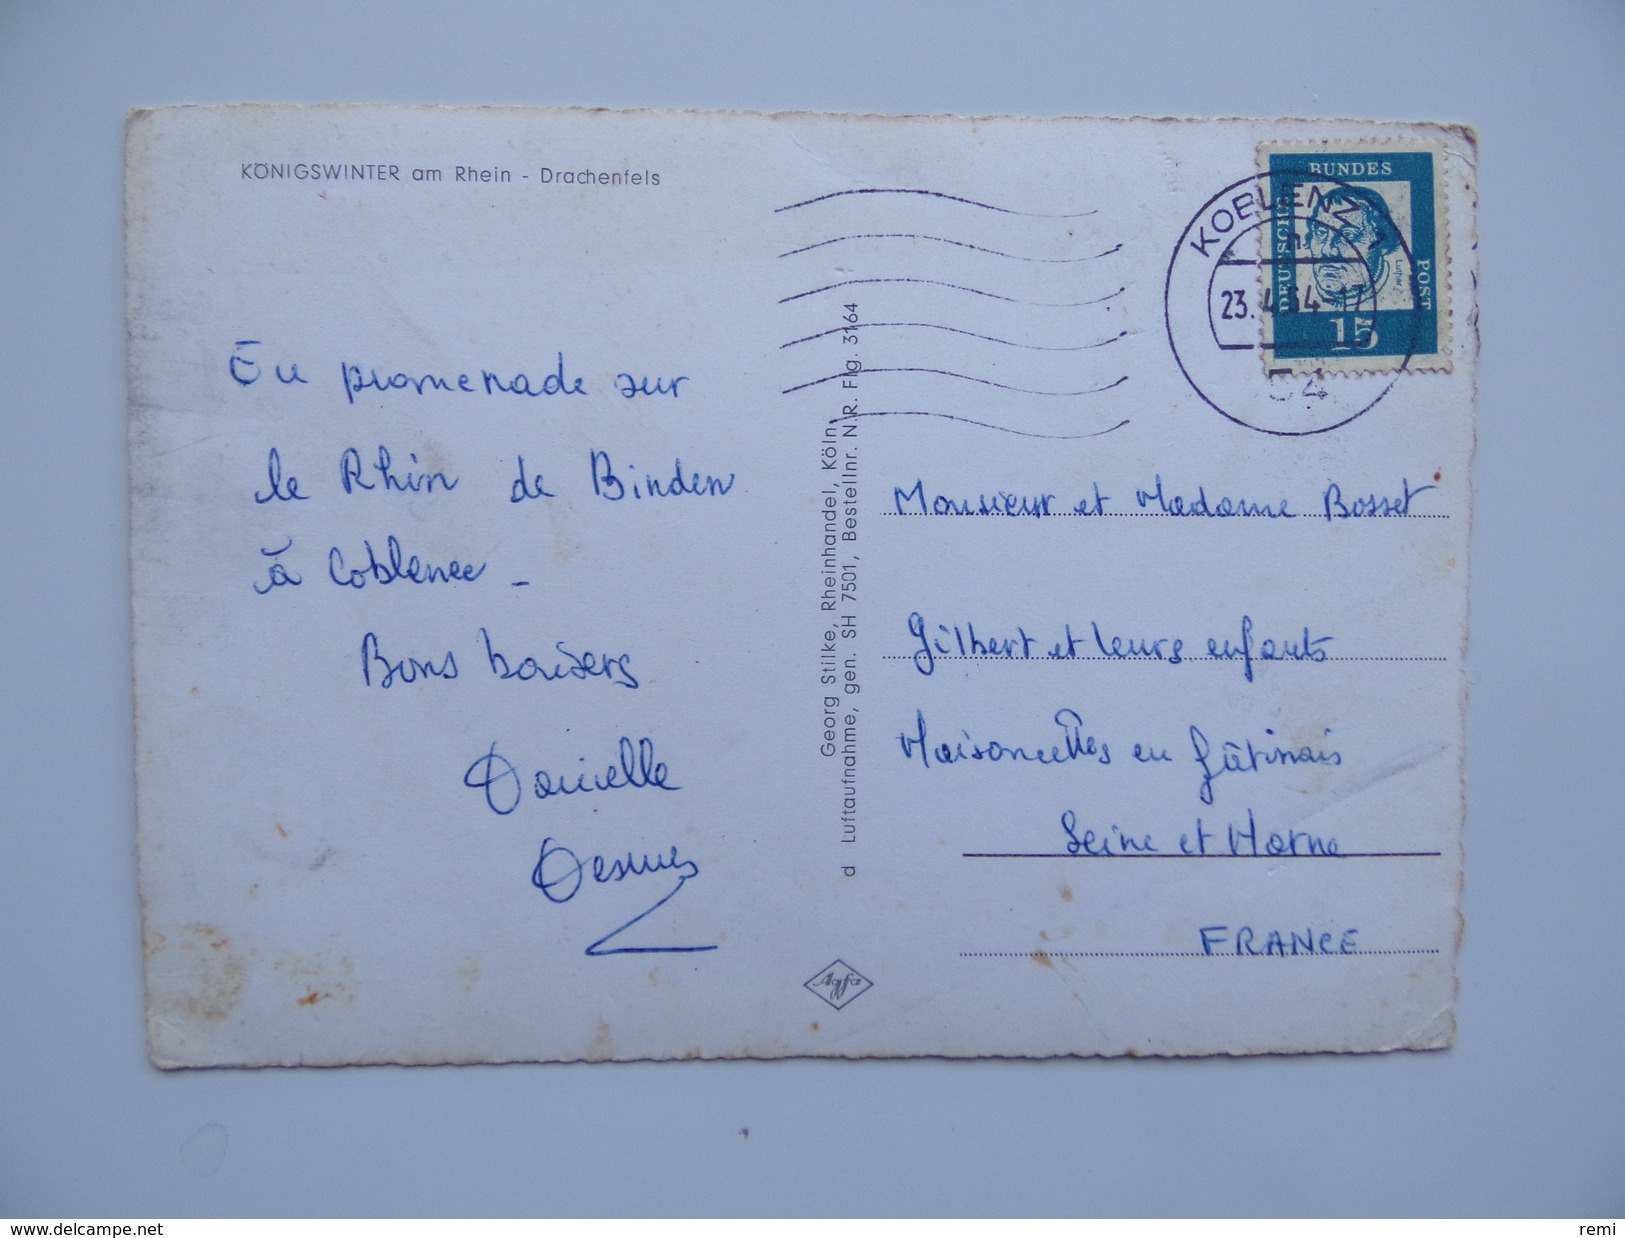 KÖNIGSWINTER am Rhein - Drachenfels
En promenade sur
le Rhin de Binden
à Coblence -
Bons baisers
Danielle
Georg Stilke, Rheinhandel, Köln,
d Luftaufnahme, gen. SH 7501, Bestellnr. N.R. Flg. 3164
Agfa
DEUTSCHE BUNDES POST
Luther
15
KOBLENZ 1
23.4.64-17
54
Monsieur et Madame Bosset
Gilbert et leurs enfants
Maisoncelles en Gâtinais
Seine et Marne
FRANCE
www.delcampe.net
remi